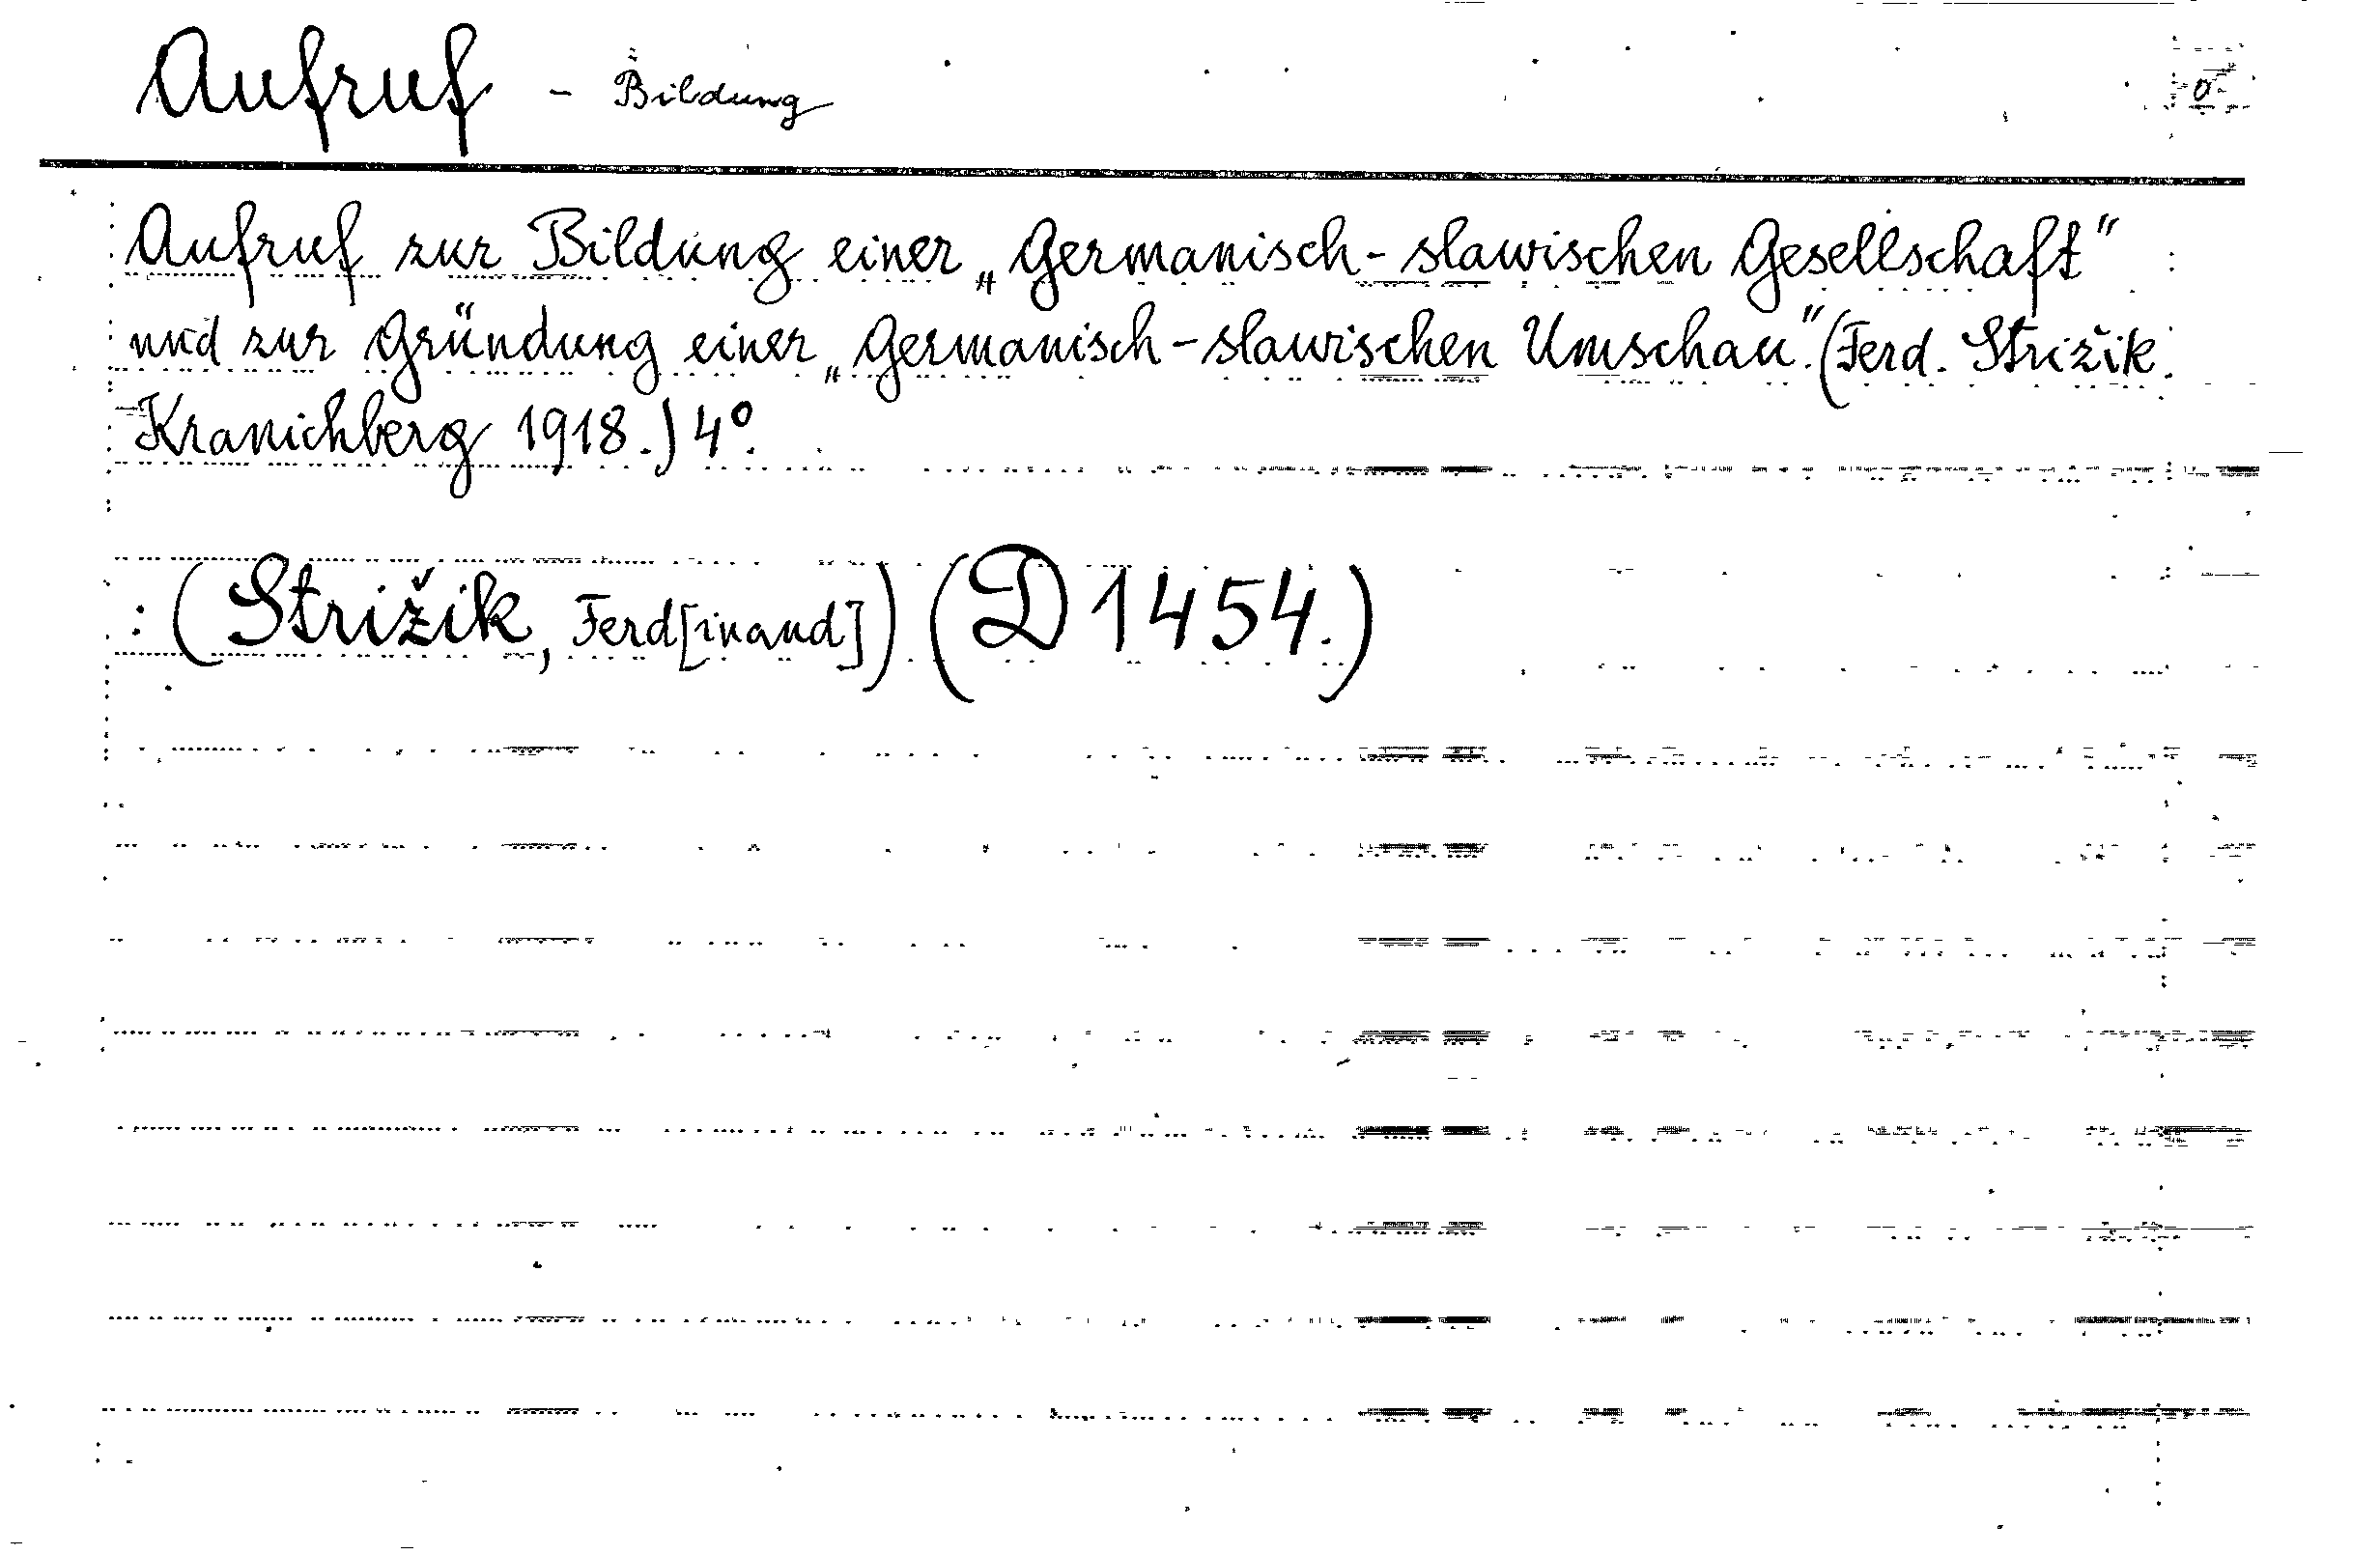 Aufruf - Bildung
Aufruf zur Bildung einer „Germanisch-slawischen Gesellschaft“
und zur Gründung einer „Germanisch-slawischen Umschau“. (Ferd. Strižik
Kranichberg 1918.) 4°.
(Strižik, Ferd[inand]) (D 1454.)